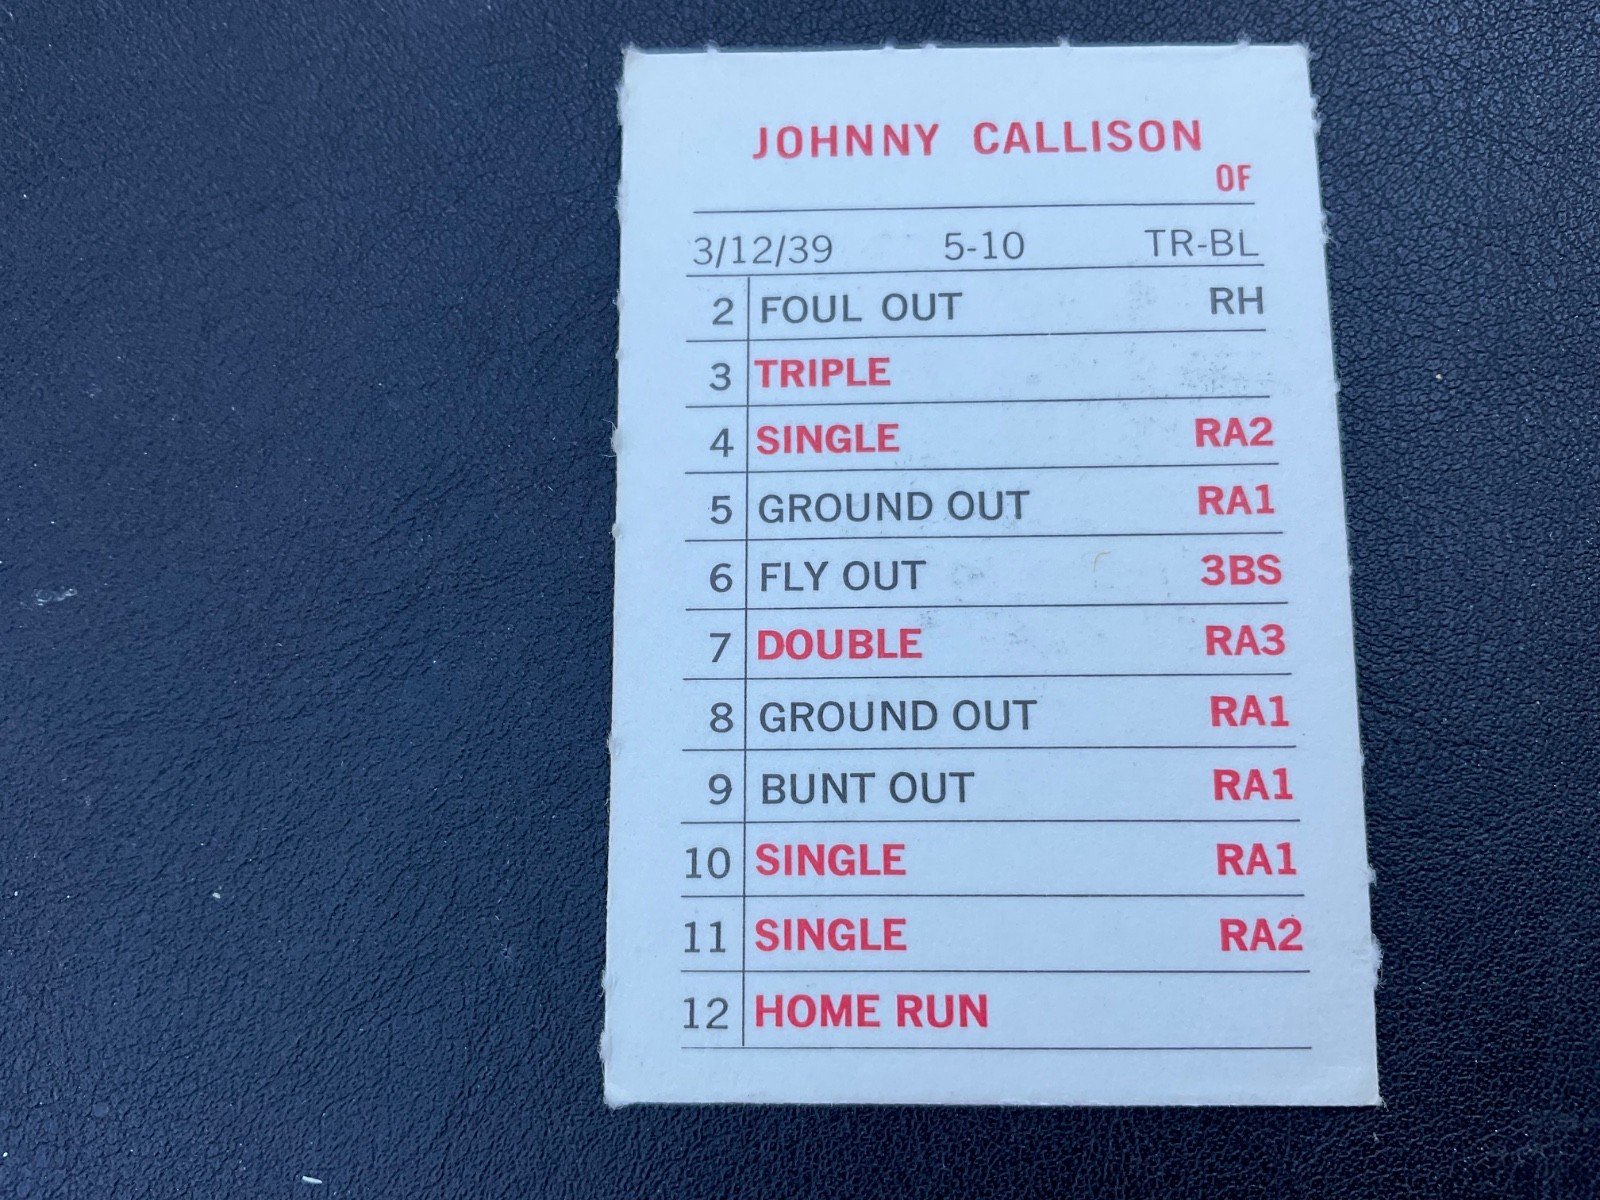 JOHNNY CALLISON
OF
3/12/39 5-10 TR-BL
2 FOUL OUT RH
3 TRIPLE
4 SINGLE RA2
5 GROUND OUT RA1
6 FLY OUT 3BS
7 DOUBLE RA3
8 GROUND OUT RA1
9 BUNT OUT RA1
10 SINGLE RA1
11 SINGLE RA2
12 HOME RUN